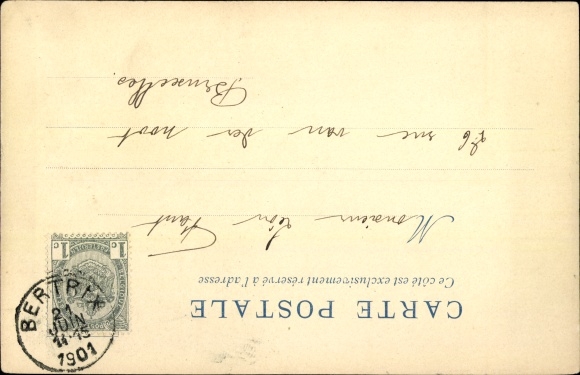 CARTE POSTALE
Ce côté est exclusivement réservé à l'adresse
Monsieur Léon
76 rue van der noot
Bruxelles.
1c 1c
BERTRIX
21
JUIN
1901